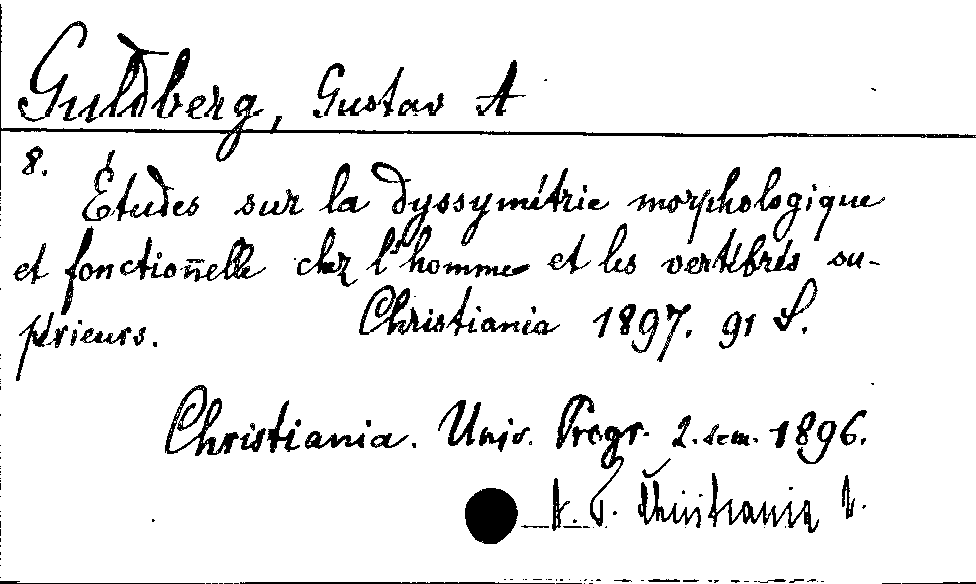 Guldberg, Gustav A
8.
Études sur la dyssymétrie morphologique
et fonctionelle chez l'homme et les vertébrés su-
périeurs. Christiania 1897. 91 S.
Christiania. Univ. Progr. 2. sem. 1896.
Christiania